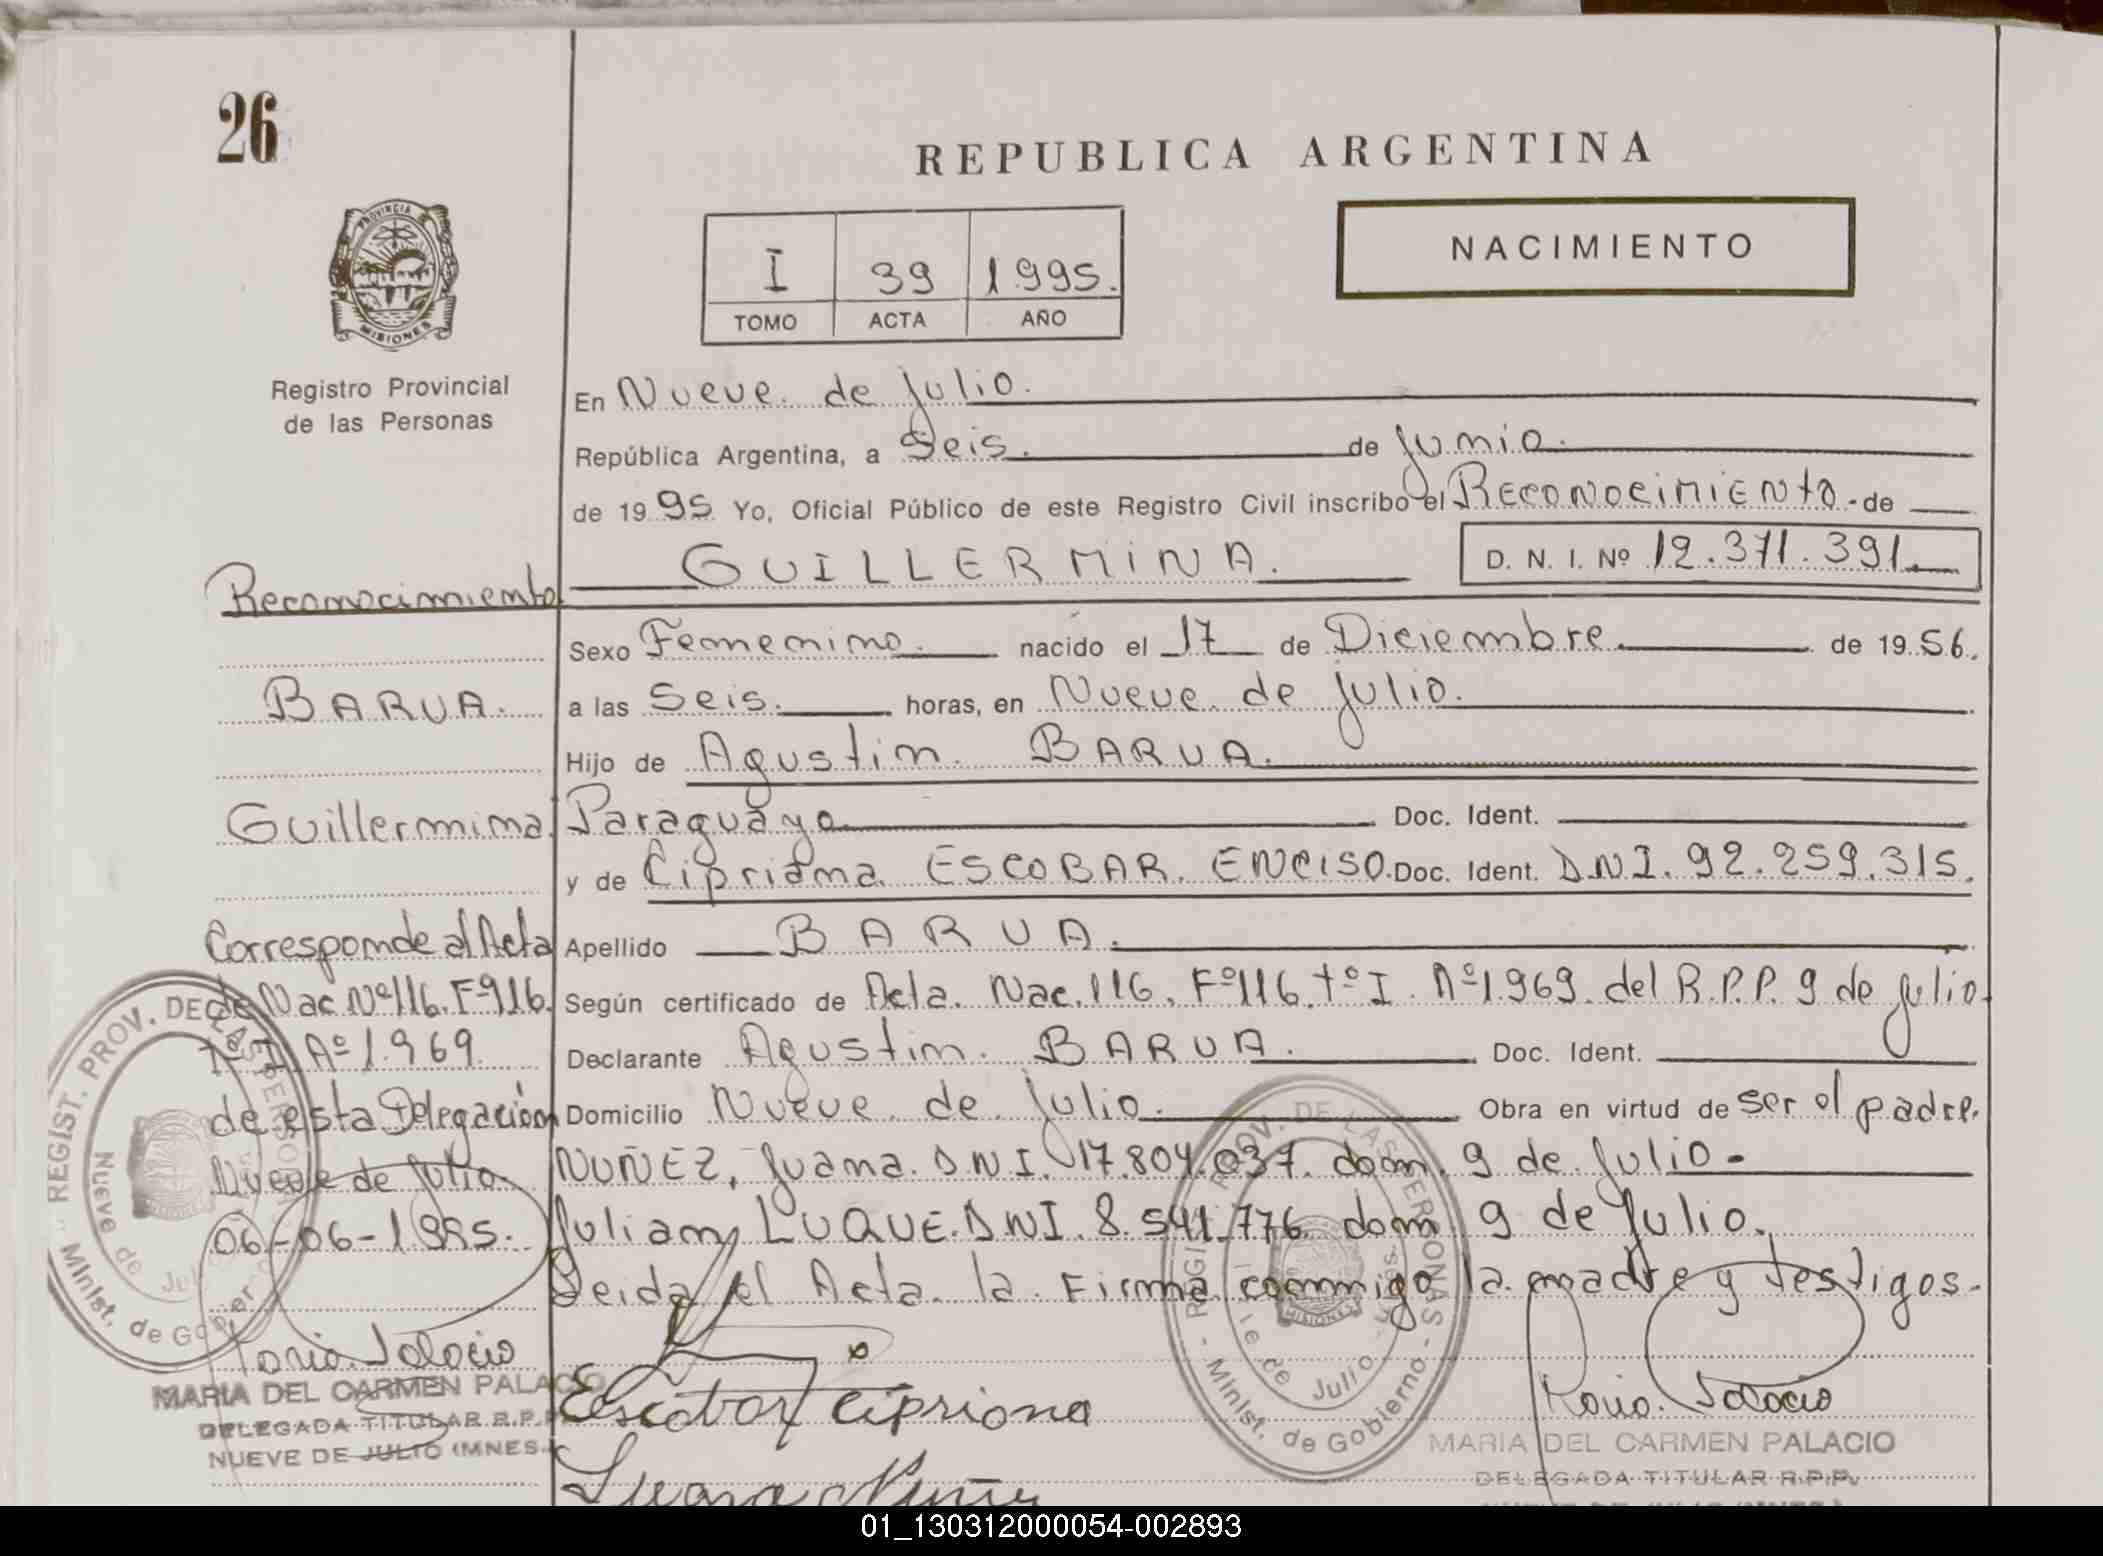 26
REPUBLICA ARGENTINA
NACIMIENTO
I 39 1.995.
TOMO ACTA AÑO
PROVINCIA DE
MISIONES
Registro Provincial
de las Personas
En Nueve de Julio.
República Argentina, a Seis. de Junio.
de 19 95 Yo, Oficial Público de este Registro Civil inscribo el Reconocimiento - de
GUILLERMINA. D. N. I. Nº 12.371.391
Sexo Femenino. nacido el 17 de Diciembre. de 19 56.
a las Seis. horas, en Nueve de Julio.
Hijo de Agustin. BARUA.
Paraguayo Doc. Ident.
y de Cipriana ESCOBAR. ENCISO. Doc. Ident. D.N.I. 92.259.315.
Apellido BARUA.
Según certificado de Acta. Nac. 116. Fº116. tº I. Aº1.969. del R.P.P. 9 de Julio.
Declarante Agustin. BARUA. Doc. Ident.
Domicilio Nueve de Julio. Obra en virtud de ser el padre.
NUÑEZ, Juana. D.N.I. 17.804.037. dom. 9 de Julio -
Julian LUQUE. DNI. 8.541.776. dom. 9 de Julio.
Leida el Acta. la Firma conmigo la madre y testigos.
Escobar Cipriana
Juana Nuñez
Reconocimiento
BARUA.
Guillermina.
Corresponde al Acta
de Nac Nº116. Fº116.
Tº I Aº 1.969.
de esta Delegación
Nueve de Julio.
06-06-1995.
REGIST. PROV. DE LAS PERSONAS
Nueve de Julio
Minist. de Gobierno
Maria Palacio
MARIA DEL CARMEN PALACIO
DELEGADA TITULAR R.P.P.
NUEVE DE JULIO (MNES.)
REGIST. PROV. DE LAS PERSONAS - Minist. de Gobierno -
de Julio
MISIONES
Maria Palacio
MARIA DEL CARMEN PALACIO
DELEGADA TITULAR R.P.P.
01_130312000054-002893